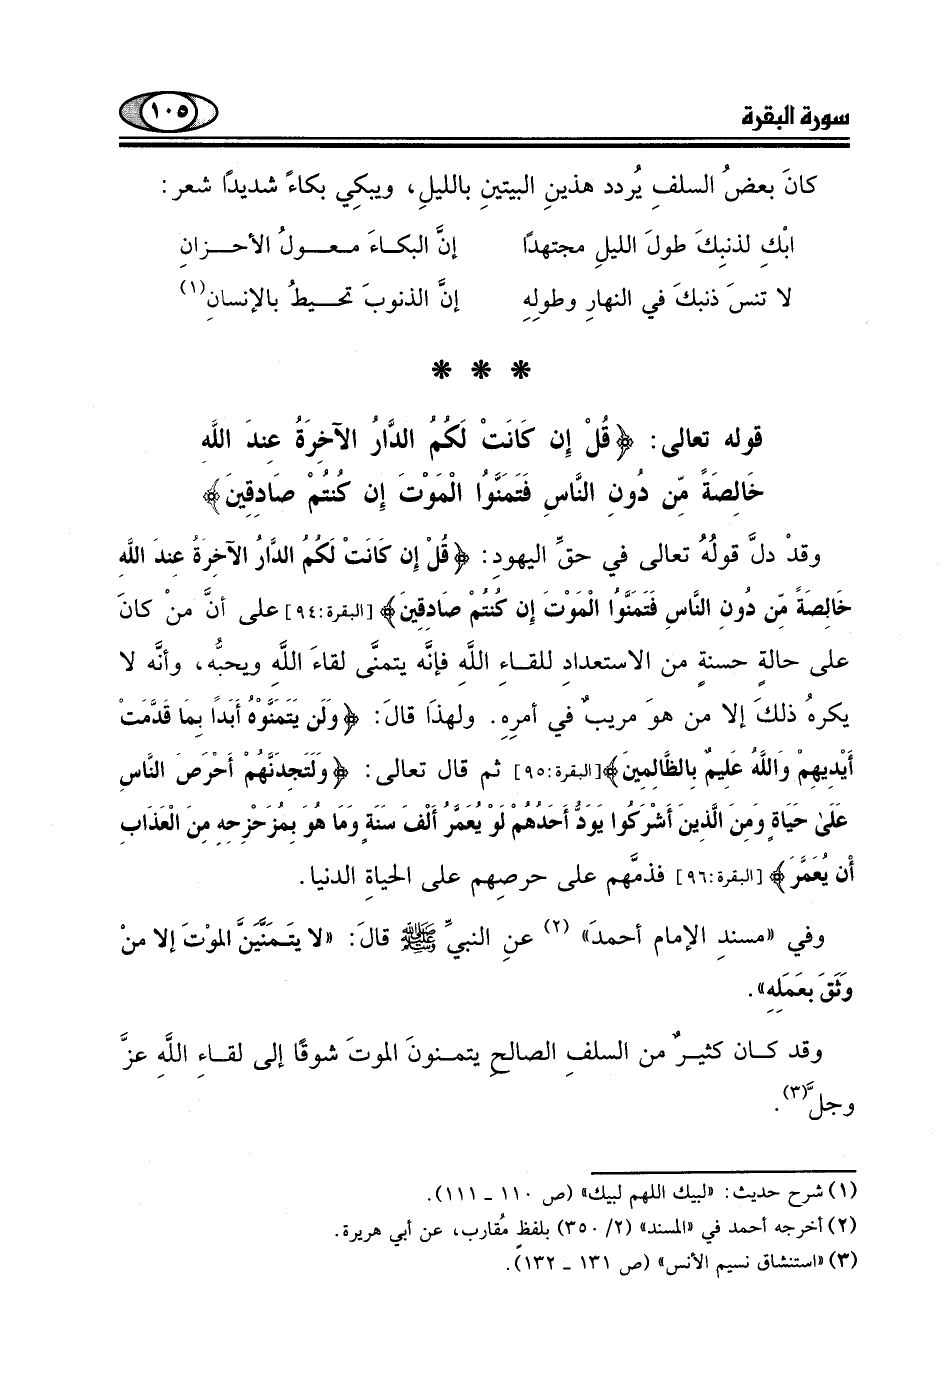 سورة البقرة
١٠٥
كانَ بعضُ السلفِ يُردد هذينِ البيتينِ بالليلِ، ويبكِي بكاءً شديدًا شعر:
ابْكِ لذنبِكَ طولَ الليلِ مجتهدًا إنَّ البكـاءَ معــولُ الأحــزانِ
لا تنسَ ذنبكَ في النهارِ وطولِهِ إنَّ الذنوبَ تحيــطُ بالإنسانِ(١)
* * *
قوله تعالى: ﴿قُلْ إِن كَانَتْ لَكُمُ الدَّارُ الآخِرَةُ عِندَ اللَّهِ
خَالِصَةً مِّن دُونِ النَّاسِ فَتَمَنَّوُا الْمَوْتَ إِن كُنتُمْ صَادِقِينَ﴾
وقدْ دلَّ قولُهُ تعالى في حقِّ اليهودِ: ﴿قُلْ إِن كَانَتْ لَكُمُ الدَّارُ الآخِرَةُ عِندَ اللَّهِ
خَالِصَةً مِّن دُونِ النَّاسِ فَتَمَنَّوُا الْمَوْتَ إِن كُنتُمْ صَادِقِينَ﴾ [البقرة:٩٤] على أنَّ منْ كانَ
على حالةٍ حسنةٍ من الاستعدادِ للقـاءِ اللَّهِ فإنَّه يتمنَّى لقاءَ اللَّهِ ويحبُّه، وأنَّه لا
يكرهُ ذلكَ إلا من هوَ مريبٌ في أمرِهِ. ولهذَا قالَ: ﴿وَلَن يَتَمَنَّوْهُ أَبَدًا بِمَا قَدَّمَتْ
أَيْدِيهِمْ وَاللَّهُ عَلِيمٌ بِالظَّالِمِينَ﴾[البقرة:٩٥] ثم قال تعالى: ﴿وَلَتَجِدَنَّهُمْ أَحْرَصَ النَّاسِ
عَلَىٰ حَيَاةٍ وَمِنَ الَّذِينَ أَشْرَكُوا يَوَدُّ أَحَدُهُمْ لَوْ يُعَمَّرُ أَلْفَ سَنَةٍ وَمَا هُوَ بِمُزَحْزِحِهِ مِنَ الْعَذَابِ
أَن يُعَمَّرَ﴾ [البقرة:٩٦] فذمَّهم على حرصِهم على الحياةِ الدنيا.
وفي «مسندِ الإمام أحمدَ» (٢) عنِ النبيِّ ﷺ قالَ: «لا يتَـمنَّيَنَّ الموْتَ إلا منْ
وَثَقَ بعَمَلِهِ».
وقد كـان كثيـرٌ من السلفِ الصالحِ يتمنونَ الموتَ شوقًا إلى لقـاءِ اللَّهِ عزَّ
وجلَّ(٣).
(١) شرح حديث: «لبيك اللهم لبيك» (ص ١١٠ ـ ١١١).
(٢) أخرجه أحمد في «المسند» (٢/ ٣٥٠) بلفظٍ مُقارب، عن أبي هريرة.
(٣) «استنشاق نسيم الأنس» (ص ١٣١ ـ ١٣٢).